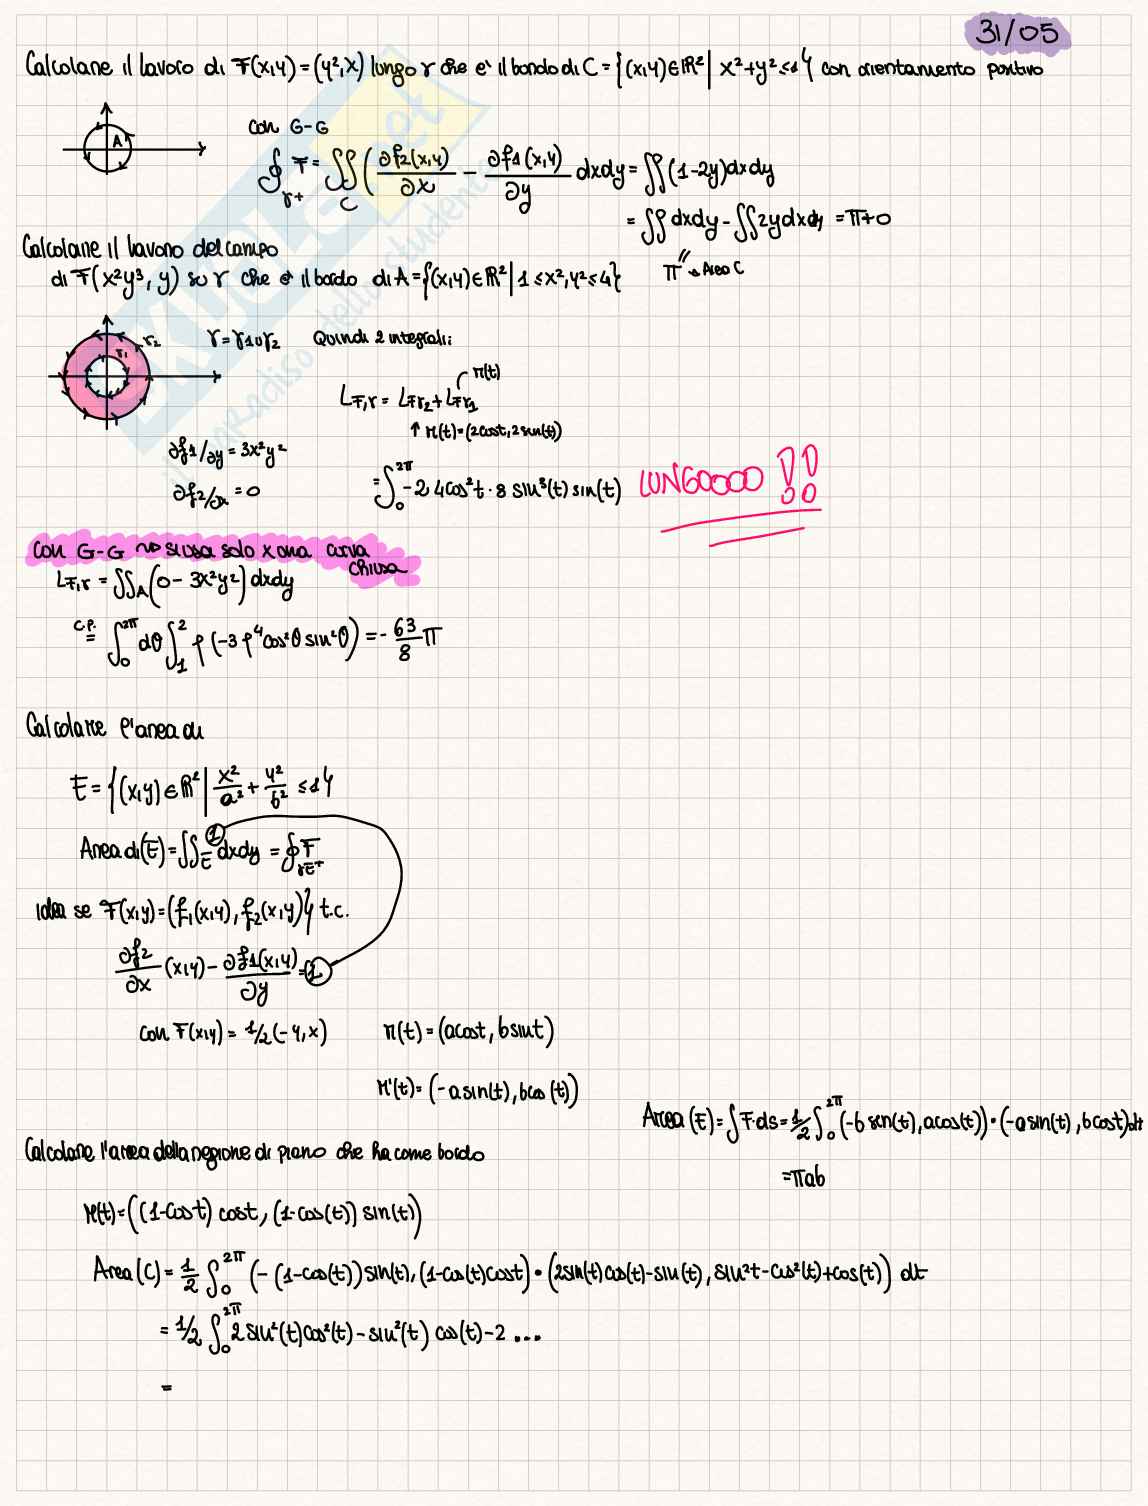 31/05
Calcolare il lavoro di F(x,y) = (y², x) lungo γ che e' il bordo di C = {(x,y) ∈ ℝ² | x²+y² ≤ 1} con orientamento positivo
A
con G-G
∮_γ+ F = ∬_C ( ∂f2(x,y)/∂x - ∂f1(x,y)/∂y dxdy = ∬ (1-2y) dxdy
= ∬ dxdy - ∬ 2y dxdy = π+0
π → Area C
Calcolare il lavoro del campo
di F(x²y³, y) su γ che è il bordo di A = {(x,y) ∈ ℝ² | 1 ≤ x², y² ≤ 4}
γ1 γ2
γ = γ1 ∪ γ2 Quindi 2 integrali:
r(t)
L_F,γ = L_Fγ2 + L_Fγ1
↑ r(t) = (2cost, 2sin(t))
∂f1/∂y = 3x²y²
∂f2/∂x = 0
= ∫_0^2π -2 4cos²t · 8 sin³(t) sin(t) LUNGOOOO !!
con G-G ⇝ si usa solo x una curva
chiusa
L_F,γ = ∬_A (0 - 3x²y²) dxdy
c.p. = ∫_0^2π dθ ∫_1^2 ρ (-3ρ⁴cos²θ sin²θ) = - 63/8 π
Calcolare l'area di
E = {(x,y) ∈ ℝ² | x²/a² + y²/b² ≤ 1}
Area di (E) = ∬_E 1 dxdy = ∮_γE+ F
idea se F(x,y) = (f₁(x,y), f₂(x,y)} t.c.
∂f2/∂x (x,y) - ∂f1(x,y)/∂y = 1
con F(x,y) = 1/2 (-y, x) r(t) = (acost, bsint)
r'(t) = (-asin(t), bcos(t))
Area (E) = ∫ F·ds = 1/2 ∫_0^2π (-b sen(t), acos(t)) · (-asin(t), bcost) dt
= πab
Calcolare l'area della regione di piano che ha come bordo
r(t) = ((1-cost) cost, (1-cos(t)) sin(t))
Area (C) = 1/2 ∫_0^2π (-(1-cos(t)) sin(t), (1-cos(t)cost) · (2sin(t)cos(t)-sin(t), sin²t-cos²(t)+cos(t)) dt
= 1/2 ∫_0^2π 2sin²(t)cos²(t) - sin²(t) cos(t) - 2 ...
=